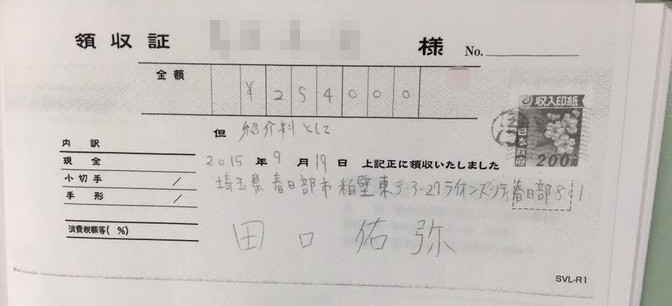 領収証 様 No.
金額 ¥254000
収入印紙
日本政府
200円
但 紹介料として
内訳
現金 2015年9月19日 上記正に領収いたしました
小切手 / 埼玉県春日部市粕壁東3-3-27ライオンズシティ春日部81
手形 /
消費税額等(%)
田口佑弥
SVL-R1